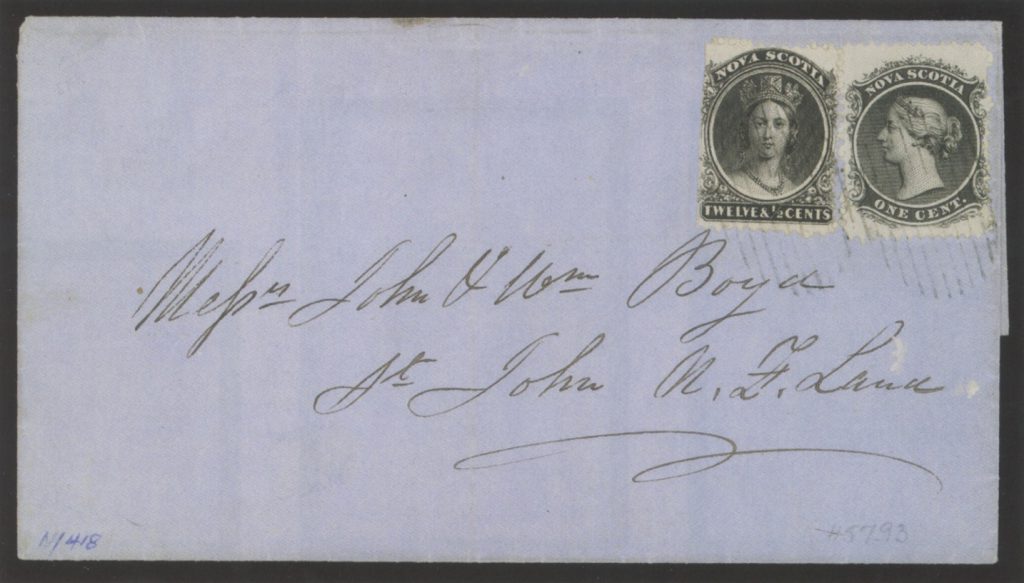 NOVA SCOTIA
TWELVE & ½ CENTS
NOVA SCOTIA
ONE CENT.
Messrs John & Wm Boyd
St John N.F. Land
N1418
45793